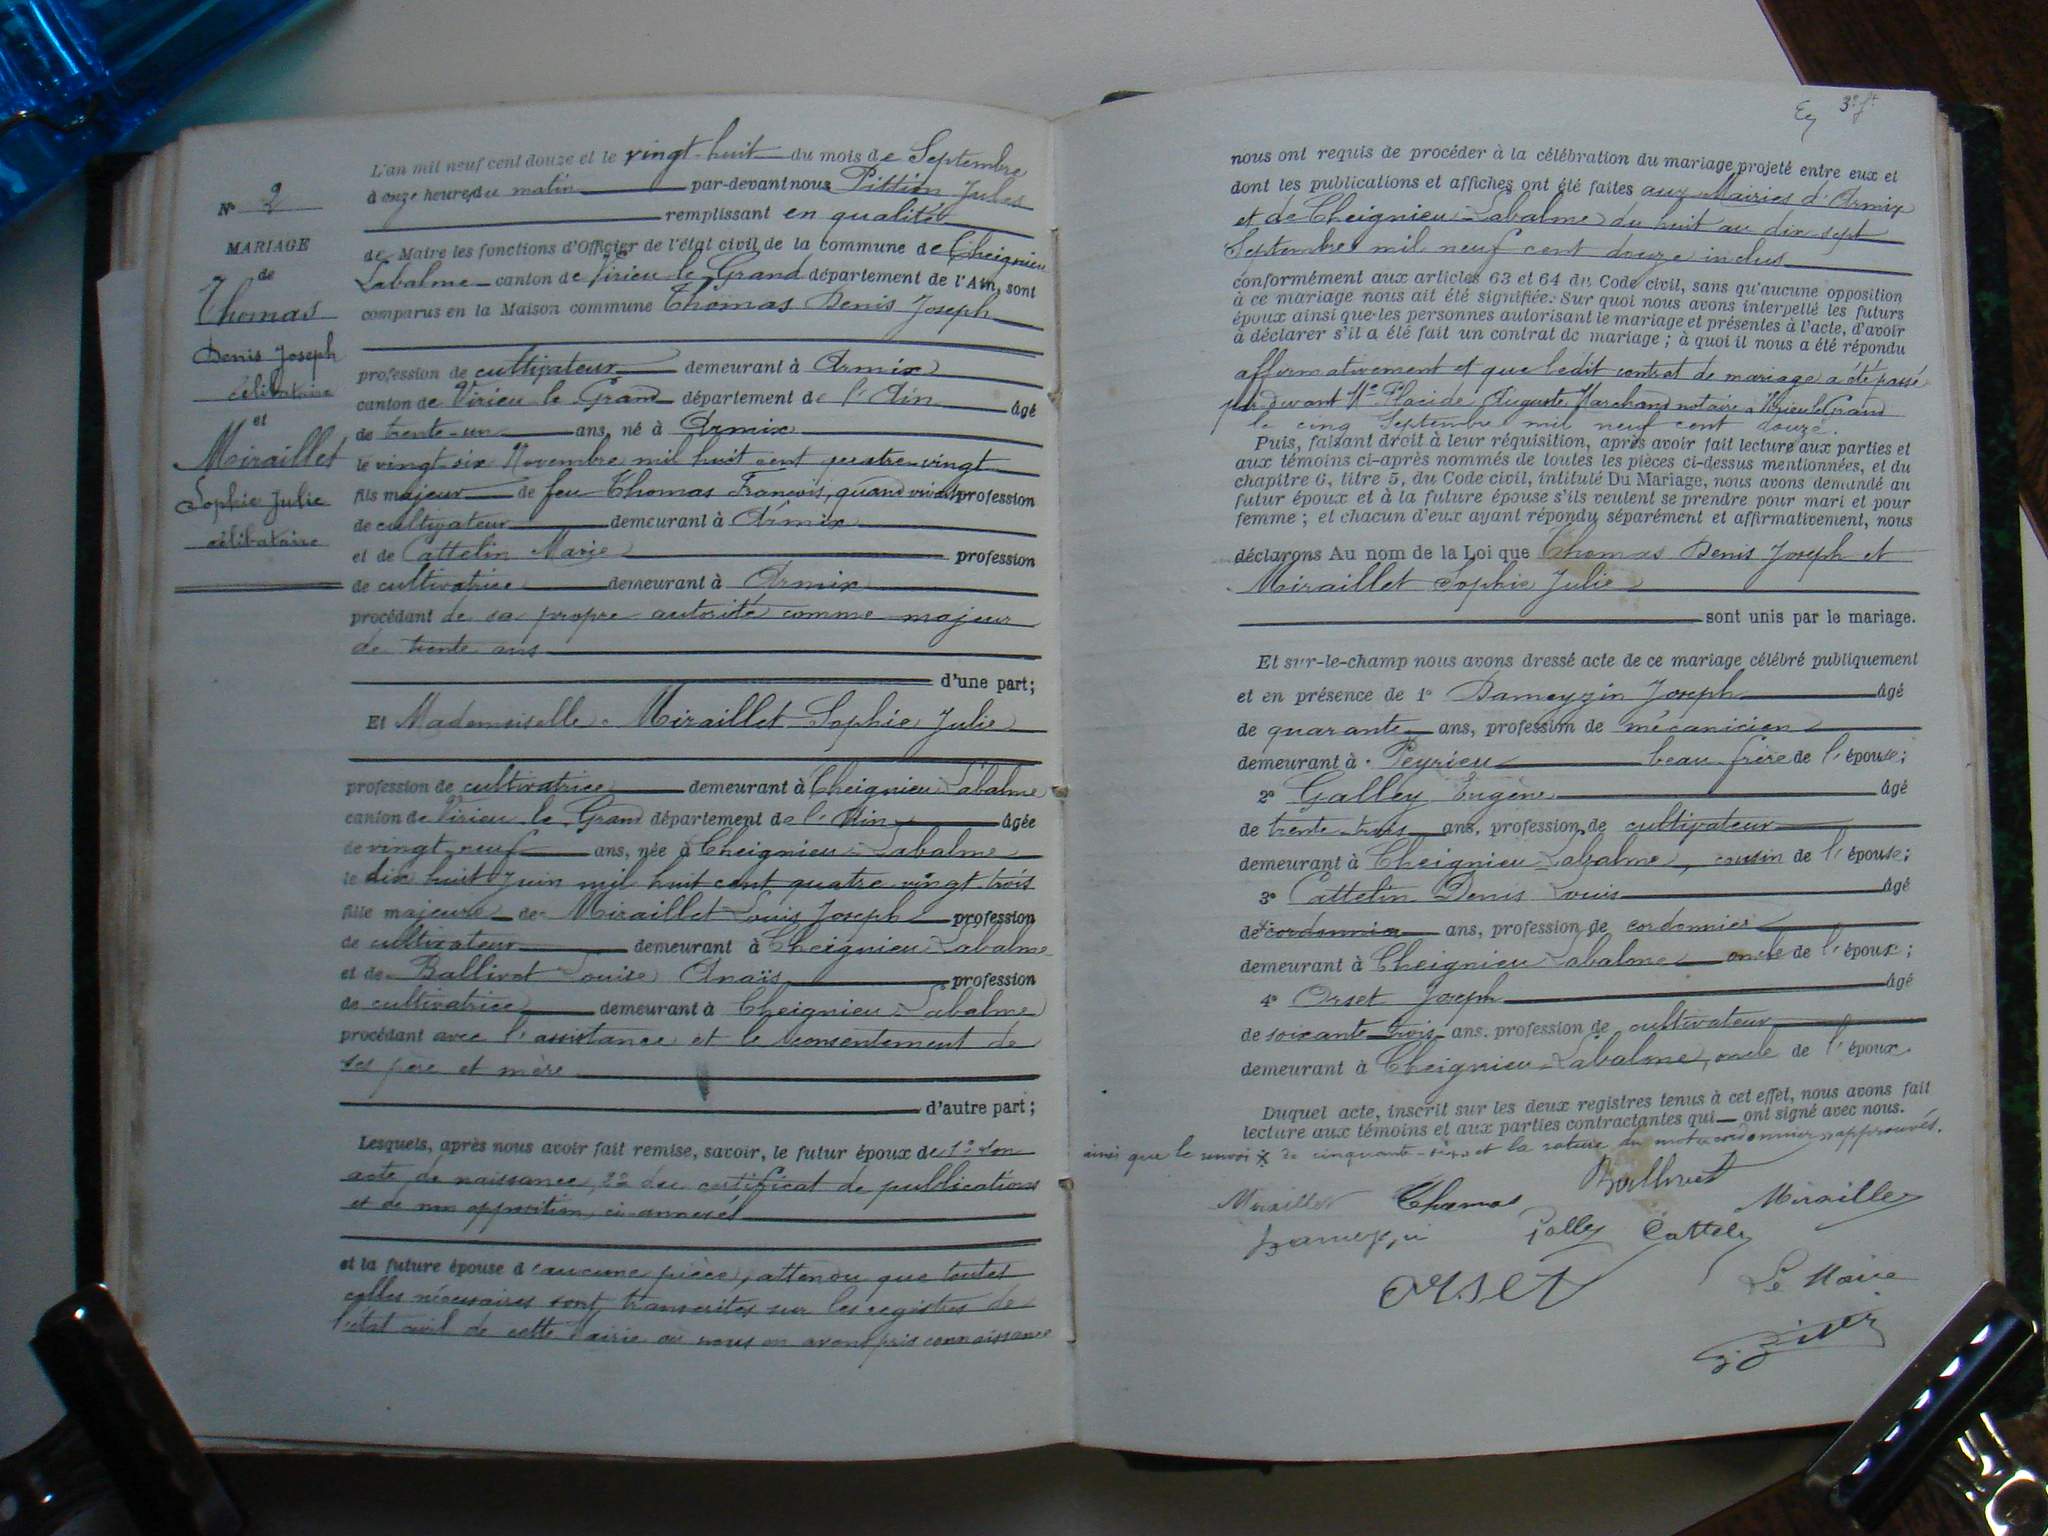 N° 2
MARIAGE
de
Thomas
Denis Joseph
célibataire
et
Miraillet
Sophie Julie
célibataire
L'an mil neuf cent douze et le vingt-huit du mois de Septembre
à onze heures du matin par-devant nous Pittion Jules
remplissant en qualité
de Maire les fonctions d'Officier de l'état civil de la commune de Cheignieu
Labalme canton de Virieu le Grand département de l'Ain, sont
comparus en la Maison commune Thomas Denis Joseph
profession de cultivateur demeurant à Armix
canton de Virieu le Grand département de l'Ain âgé
de trente-un ans, né à Armix
le vingt-six Novembre mil huit cent quatre-vingt
fils majeur de feu Thomas François, quand vivait profession
de cultivateur demeurant à Armix
et de Cattelin Marie profession
de cultivatrice demeurant à Armix
procédant de sa propre autorité comme majeur
de trente ans
d'une part;
Et Mademoiselle Miraillet Sophie Julie
profession de cultivatrice demeurant à Cheignieu Labalme
canton de Virieu le Grand département de l'Ain âgée
de vingt neuf ans, née à Cheignieu Labalme
le dix huit Juin mil huit cent quatre vingt trois
fille majeure de Miraillet Louis Joseph profession
de cultivateur demeurant à Cheignieu Labalme
et de Ballivet Louise Anaïs profession
de cultivatrice demeurant à Cheignieu Labalme
procédant avec l'assistance et le consentement de
ses père et mère
d'autre part;
Lesquels, après nous avoir fait remise, savoir, le futur époux de 1° son
acte de naissance, 2° du certificat de publications
et de non opposition, ci-annexés
et la future épouse d'aucune pièce, attendu que toutes
celles nécessaires sont transcrites sur les registres de
l'état civil de cette Mairie où nous en avons pris connaissance
3e ft
nous ont requis de procéder à la célébration du mariage projeté entre eux et
dont les publications et affiches ont été faites aux Mairies d'Armix
et de Cheignieu Labalme du huit au dix sept
Septembre mil neuf cent douze inclus
conformément aux articles 63 et 64 du Code civil, sans qu'aucune opposition
à ce mariage nous ait été signifiée. Sur quoi nous avons interpellé les futurs
époux ainsi que les personnes autorisant le mariage et présentes à l'acte, d'avoir
à déclarer s'il a été fait un contrat de mariage; à quoi il nous a été répondu
affirmativement et que ledit contrat de mariage a été passé
par devant Me Placide Auguste Marchand notaire à Virieu le Grand
le cinq Septembre mil neuf cent douze.
Puis, faisant droit à leur réquisition, après avoir fait lecture aux parties et
aux témoins ci-après nommés de toutes les pièces ci-dessus mentionnées, et du
chapitre 6, titre 5, du Code civil, intitulé Du Mariage, nous avons demandé au
futur époux et à la future épouse s'ils veulent se prendre pour mari et pour
femme; et chacun d'eux ayant répondu séparément et affirmativement, nous
déclarons Au nom de la Loi que Thomas Denis Joseph et
Miraillet Sophie Julie
sont unis par le mariage.
Et sur-le-champ nous avons dressé acte de ce mariage célébré publiquement
et en présence de 1° Dameyzin Joseph âgé
de quarante ans, profession de mécanicien
demeurant à Peyrieu beau-frère de l'épouse;
2° Galley Eugène âgé
de trente-trois ans, profession de cultivateur
demeurant à Cheignieu Labalme, cousin de l'épouse;
3° Cattelin Denis Louis âgé
de x cordonnier ans, profession de cordonnier
demeurant à Cheignieu Labalme oncle de l'époux;
4° Orset Joseph âgé
de soixante trois ans, profession de cultivateur
demeurant à Cheignieu-Labalme, oncle de l'époux.
Duquel acte, inscrit sur les deux registres tenus à cet effet, nous avons fait
lecture aux témoins et aux parties contractantes qui ont signé avec nous.
ainsi que le renvoi x de cinquante-six, et la rature du mot cordonnier approuvés.
Ballivet
Miraillet Thomas Miraillet
Dameyzin Galley Cattelin
ORSET Le Maire